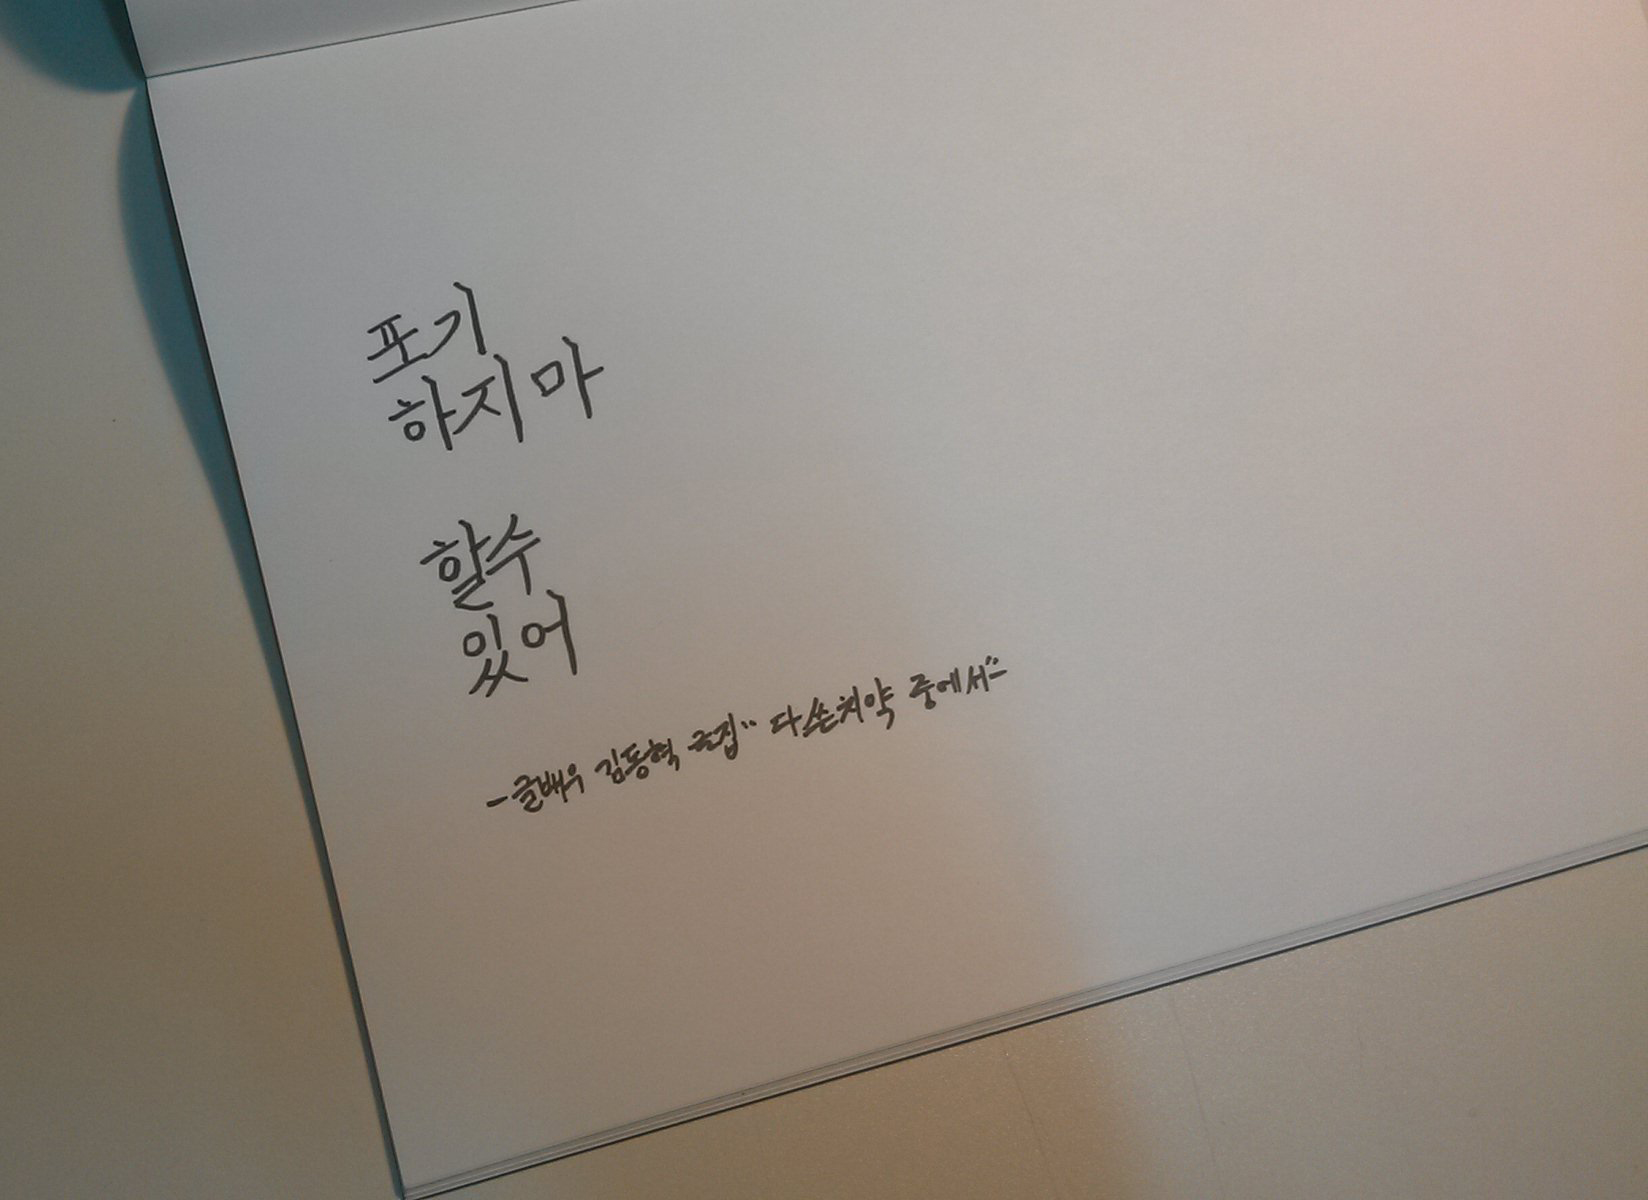 포기
하지마
할수
있어
-글배우 김동혁 글집" 다쓴치약 중에서"-